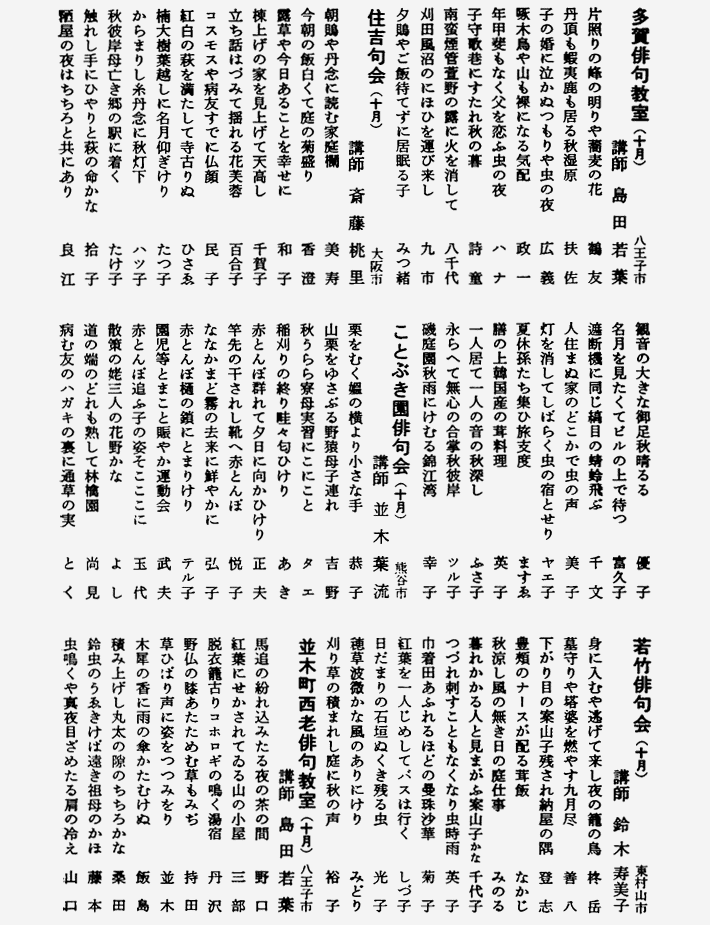 多賀俳句教室(十月)
八王子市
講師 島田若葉
片照りの峰の明りや蕎麦の花 鶴友
丹頂も蝦夷鹿も居る秋湿原 扶佐
子の婚に泣かぬつもりや虫の夜 広義
啄木鳥や山も裸になる気配 政一
年甲斐もなく父を恋ふ虫の夜 ハナ
子守歌巷にすたれ秋の暮 詩童
南蛮煙管萱野の露に火を消して 八千代
刈田風沼のにほひを運び来し 九市
夕鵙やご飯待てずに居眠る子 みつ緒
住吉句会(十月)
大阪市
講師 斎藤桃里
朝鵙や丹念に読む家庭欄 美寿
今朝の飯白くて庭の菊盛り 香澄
露草や今日あることを幸せに 和子
棟上げの家を見上げて天高し 千賀子
立ち話はづみて揺れる花芙蓉 百合子
コスモスや病友すでに仏顔 民子
紅白の萩を満たして寺古りぬ ひさゑ
楠大樹葉越しに名月仰ぎけり たつ子
からまりし糸丹念に秋灯下 ハツ子
秋彼岸母亡き郷の駅に着く たけ子
触れし手にひやりと萩の命かな 拾子
陋屋の夜はちちろと共にあり 良江
観音の大きな御足秋晴るる 優子
名月を見たくてビルの上で待つ 富久子
遮断機に同じ縞目の蜻蛉飛ぶ 千文
人住まぬ家のどこかで虫の声 美子
灯を消してしばらく虫の宿とせり ヤエ子
夏休孫たち集ひ旅支度 ますゑ
膳の上韓国産の茸料理 英子
一人居て一人の音の秋深し ふさ子
永らへて無心の合掌秋彼岸 ツル子
磯庭園秋雨にけむる錦江湾 幸子
ことぶき園俳句会(十月)
熊谷市
講師 並木葉流
栗をむく媼の横より小さな手 恭子
山栗をゆさぶる野猿母子連れ 吉野
秋うらら寮母実習にこにこと タエ
稲刈りの終り畦々匂ひけり あき
赤とんぼ群れて夕日に向かひけり 正夫
竿先の干されし靴へ赤とんぼ 悦子
ななかまど霧の去来に鮮やかに 弘子
赤とんぼ樋の鎖にとまりけり テル子
園児等とまこと賑やか運動会 武夫
赤とんぼ追ふ子の姿そこここに 玉代
散策の姥三人の花野かな よし
道の端のどれも熟して林檎園 尚見
病む友のハガキの裏に通草の実 とく
若竹俳句会(十月)
東村山市
講師 鈴木寿美子
身に入むや逃げて来し夜の籠の鳥 柊岳
墓守りや塔婆を燃やす九月尽 善八
下がり目の案山子残され納屋の隅 登志
豊頬のナースが配る茸飯 なかじ
秋涼し風の無き日の庭仕事 みのる
暮れかかる人と見まがふ案山子かな 千代子
つづれ刺すこともなくなり虫時雨 英子
巾着田あふれるほどの曼珠沙華 菊子
紅葉を一人じめしてバスは行く しづ子
日だまりの石垣ぬくき残る虫 光子
穂草波微かな風のありにけり みどり
刈り草の積まれし庭に秋の声 裕子
並木町西老俳句教室(十月)
八王子市
講師 島田若葉
馬追の紛れ込みたる夜の茶の間 野口
紅葉にせかされてゐる山の小屋 三部
脱衣籠古りコホロギの鳴く湯宿 丹沢
野仏の膝あたためむ草もみぢ 持田
草ひばり声に姿をつつみをり 並木
木犀の香に雨の傘かたむけぬ 飯島
積み上げし丸太の隙のちちろかな 桑田
鈴虫のうゑきけば遠き祖母のかほ 藤本
虫鳴くや真夜目ざめたる肩の冷え 山口